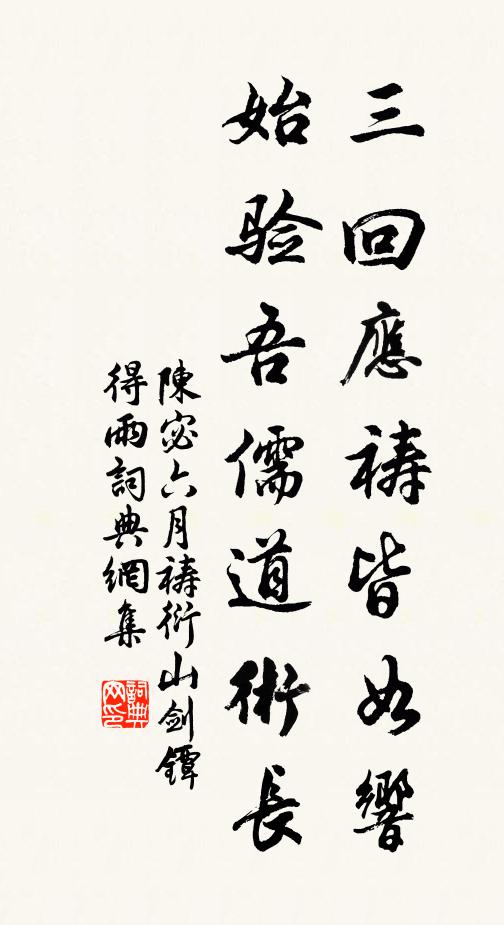 三回應祷皆如響
始验吾儒道術長
陳宓六月祷衍山剑鐔
得雨詞典網集
詞典
网印